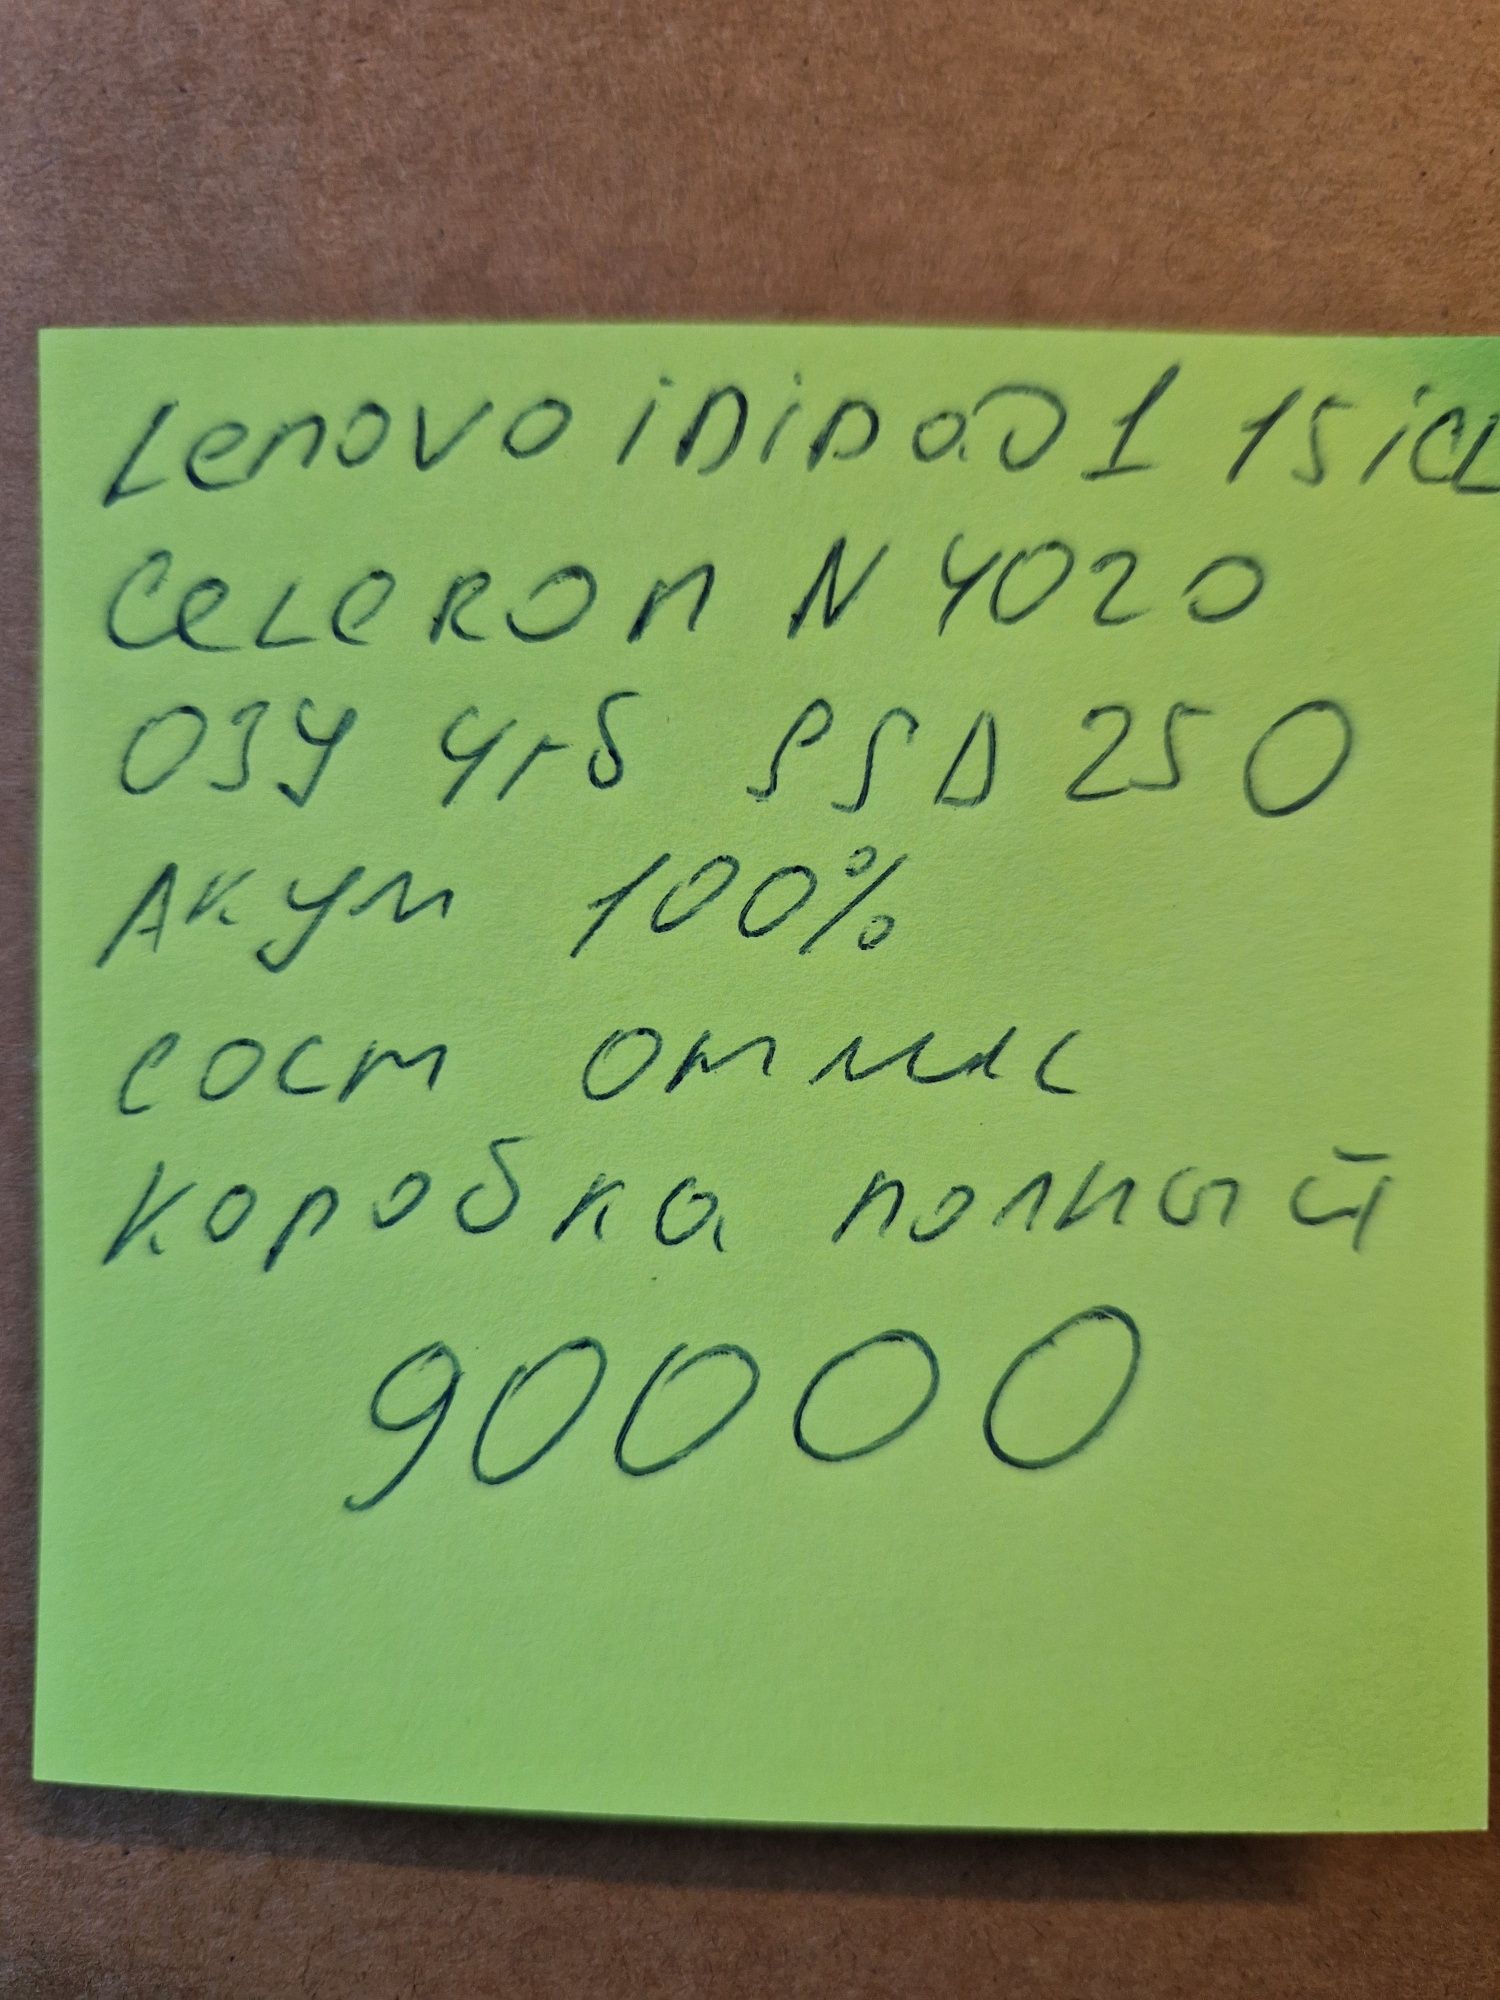 Lenovo iDiDaD 1 15 iGL
CeLeRON N4020
ОЗУ 4гб SSD 250
Акум 100%
сост отлис
коробка полный
90000